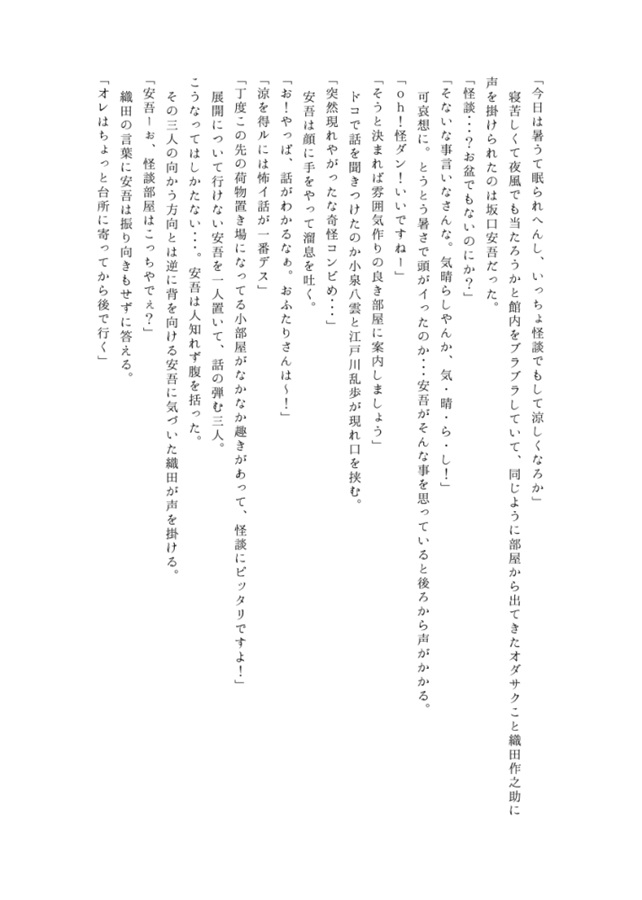 「今日は暑うて眠られへんし、いっちょ怪談でもして涼しくなろか」
寝苦しくて夜風でも当たろうかと館内をブラブラしていて、同じように部屋から出てきたオダサクこと織田作之助に
声を掛けられたのは坂口安吾だった。
「怪談・・・？お盆でもないのにか？」
「そないな事言いなさんな。気晴らしやんか、気・晴・ら・し！」
可哀想に。とうとう暑さで頭がイったのか・・・安吾がそんな事を思っていると後ろから声がかかる。
「ｏｈ！怪ダン！いいですねー」
「そうと決まれば雰囲気作りの良き部屋に案内しましょう」
ドコで話を聞きつけたのか小泉八雲と江戸川乱歩が現れ口を挟む。
「突然現れやがったな奇怪コンビめ・・・」
安吾は顔に手をやって溜息を吐く。
「お！やっぱ、話がわかるなぁ。おふたりさんは～！」
「涼を得ルには怖イ話が一番デス」
「丁度この先の荷物置き場になってる小部屋がなかなか趣きがあって、怪談にピッタリですよ！」
展開について行けない安吾を一人置いて、話の弾む三人。
こうなってはしかたない・・・。安吾は人知れず腹を括った。
その三人の向かう方向とは逆に背を向ける安吾に気づいた織田が声を掛ける。
「安吾ーぉ、怪談部屋はこっちやでぇ？」
織田の言葉に安吾は振り向きもせずに答える。
「オレはちょっと台所に寄ってから後で行く」